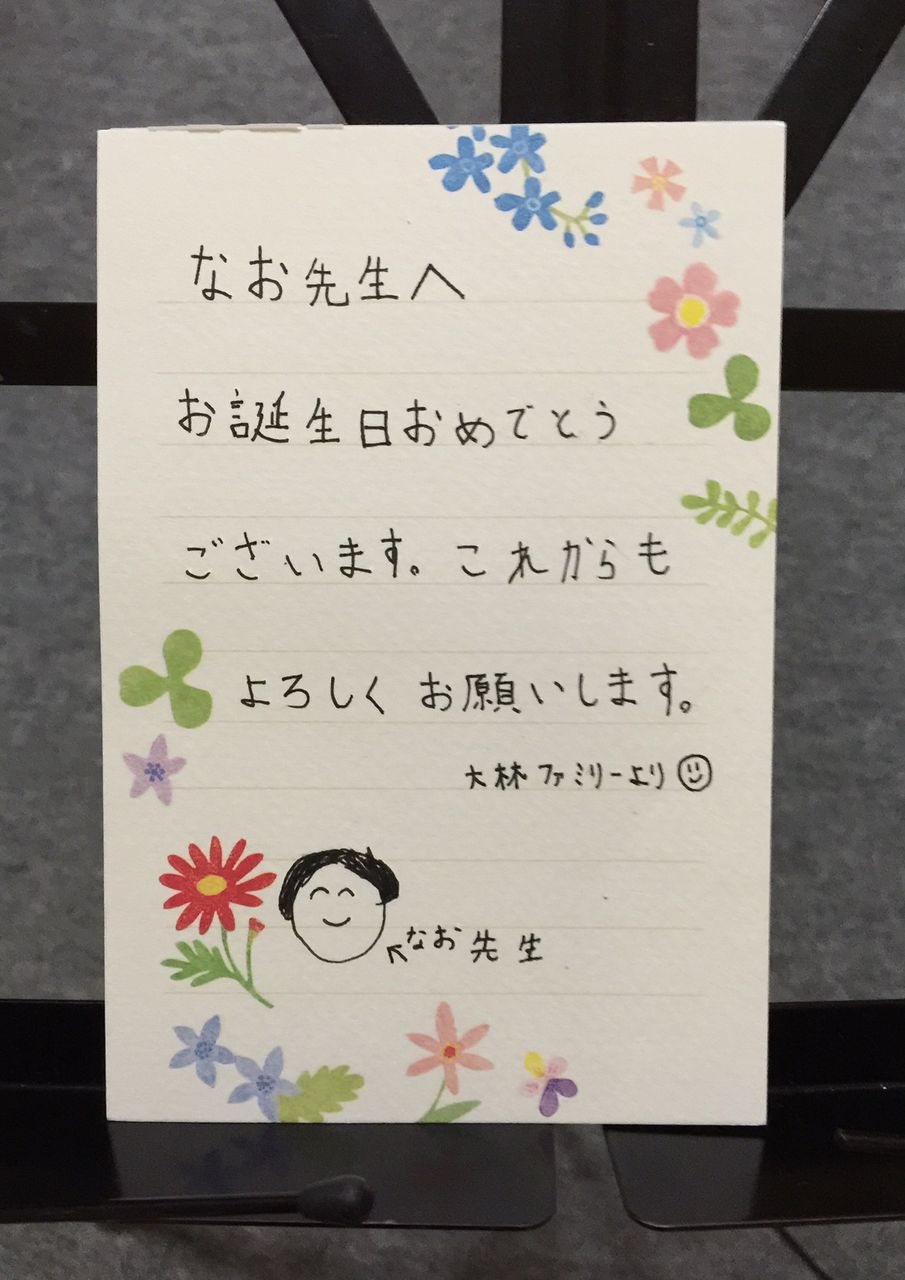 なお先生へ
お誕生日おめでとう
ございます。これからも
よろしくお願いします。
大林ファミリーより
なお先生